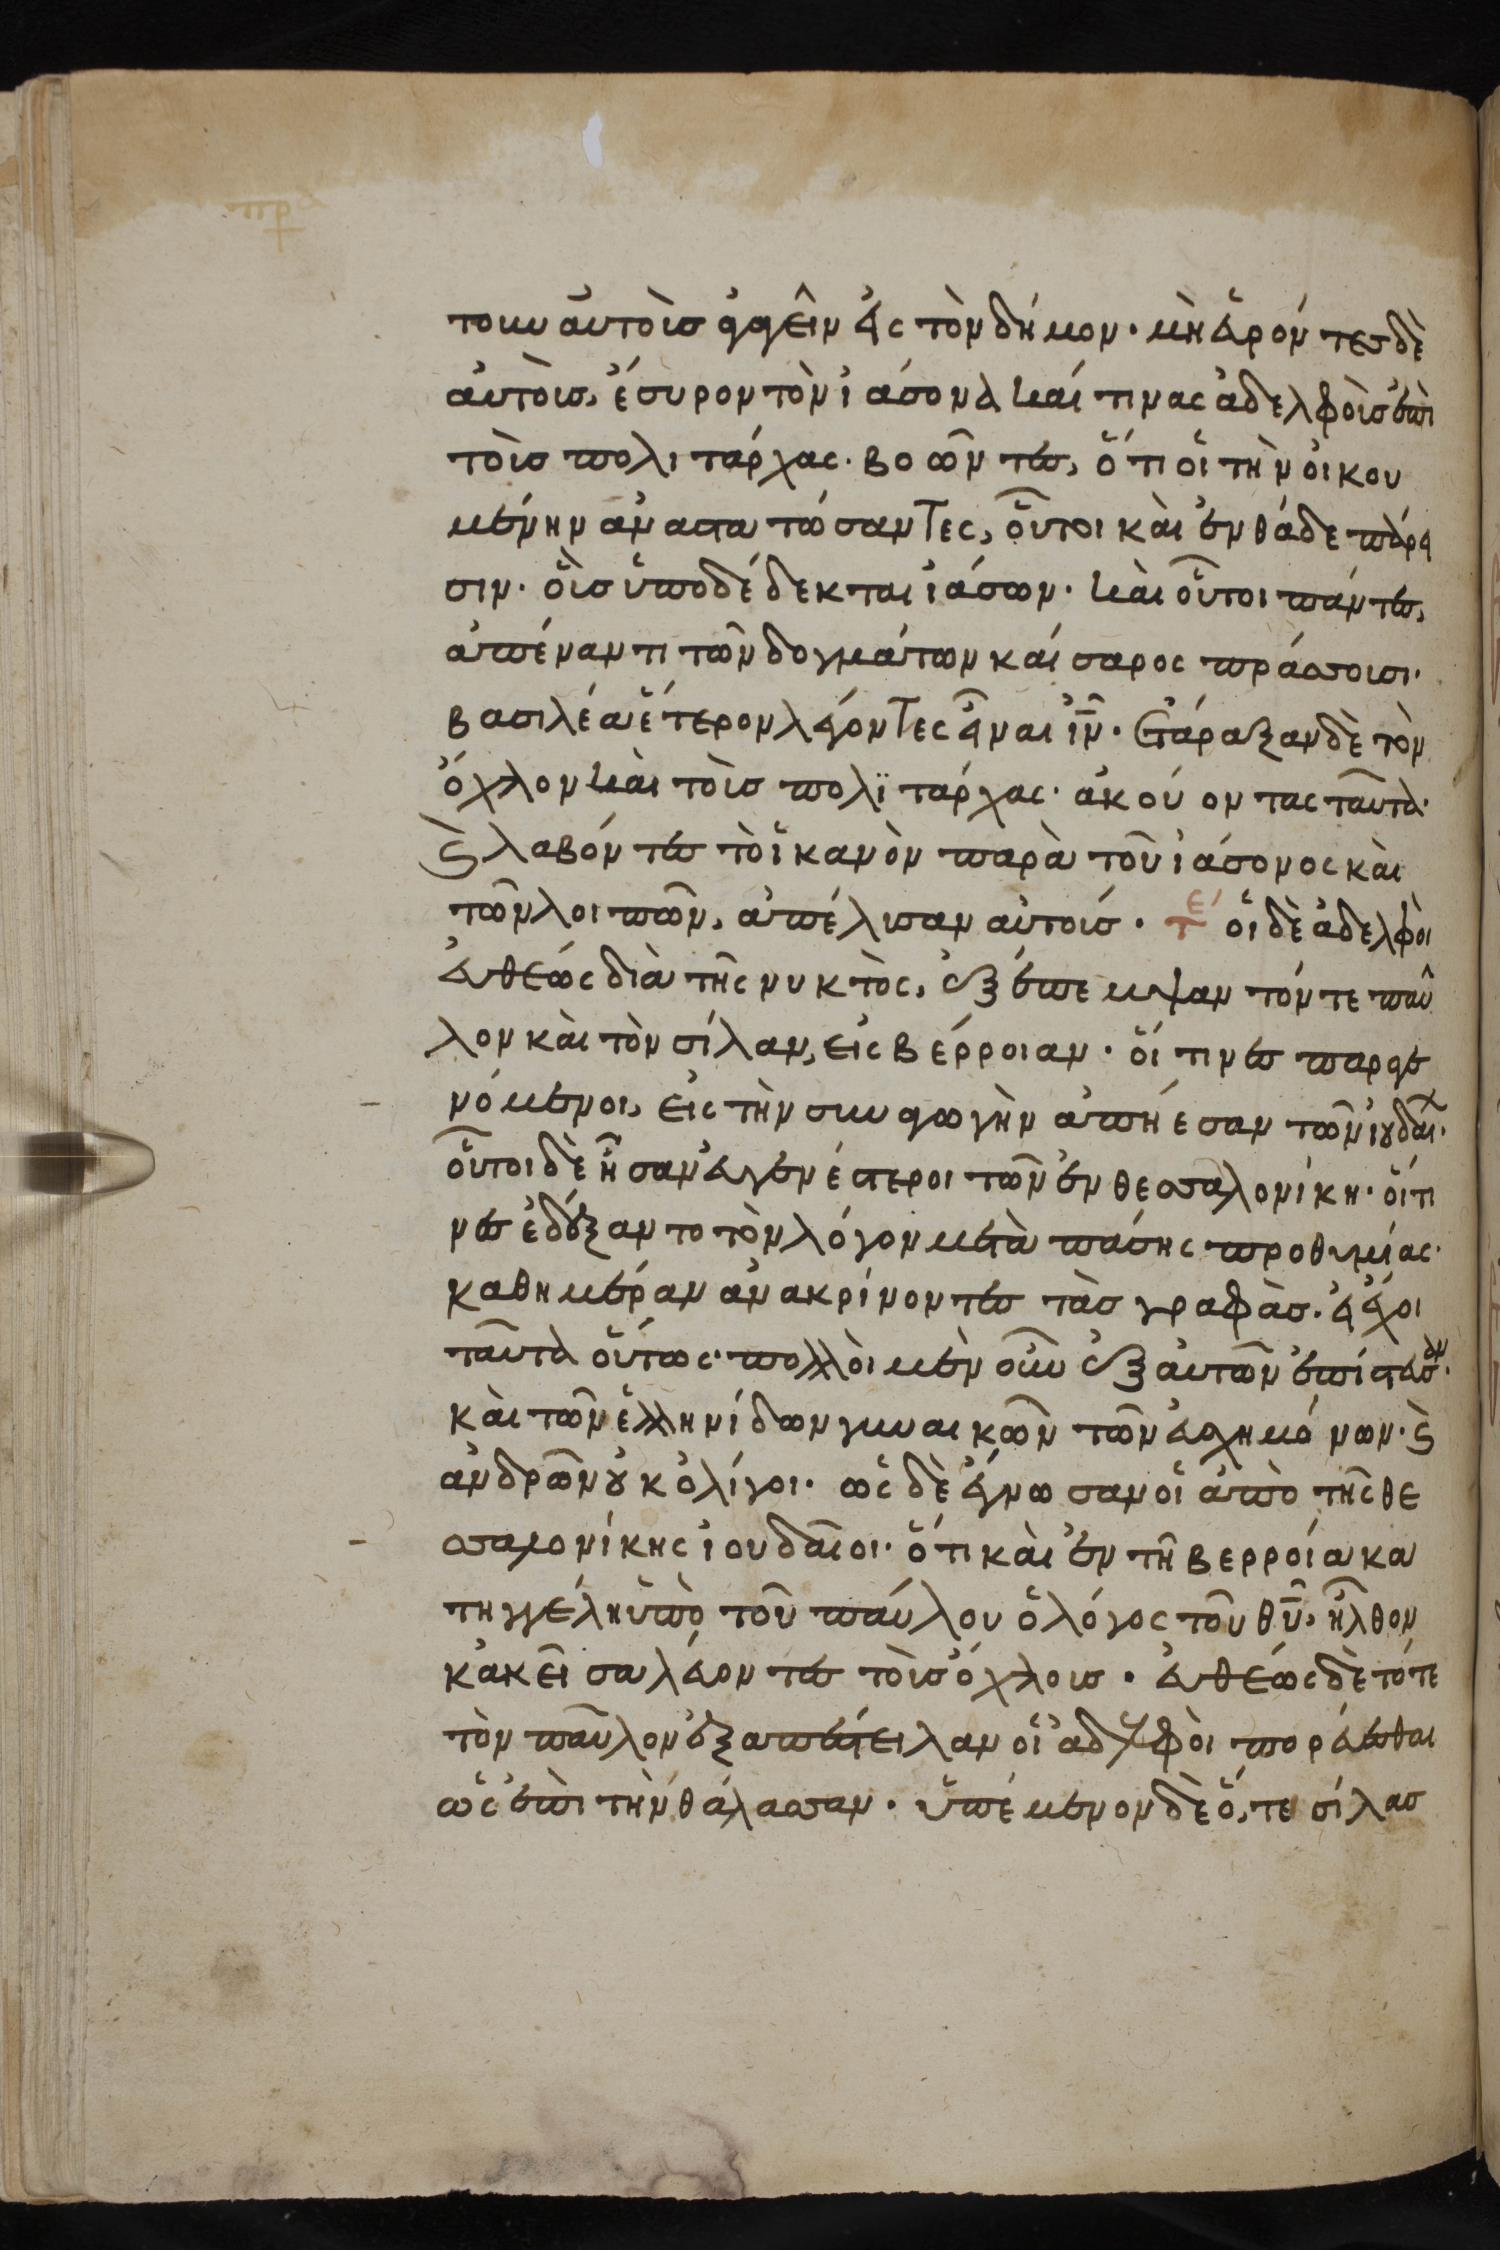 τουν αὐτοὺσ ἀγαγεῖν εἰς τὸν δήμον· μὴ εὑρόντεσ δὲ
αὐτοὺσ, ἔσυρον τὸν ἰάσονα καί τινας ἀδελφοὺσ ἐπὶ
τοὺσ πολιτάρχας· βοῶντεσ, ὅτι οἱ τὴν οἰκου
μένην ἀναστατώσαντες, οὗτοι καὶ ἐνθάδε πάρει
σιν· οὓσ ὑποδέδεκται ἰάσων· καὶ οὗτοι πάντεσ,
ἀπέναντι τῶν δογμάτων καίσαρος πράσσουσι·
βασιλέα ἕτερον λέγοντες εἶναι ἰν̅· Ετάραξαν δὲ τὸν
ὄχλον καὶ τοὺσ πολϊτάρχας· ἀκούοντας ταῦτα·
ϛ̀ λαβόντεσ τὸ ἱκανὸν παρὰ τοῦ ἰάσονος καὶ
τῶν λοιπῶν, ἀπέλυσαν αὐτούσ· τε´ οἱ δὲ ἀδελφοὶ
εὐθεώς διὰ τῆς νυκτὸς, ἐξέπεμψαν τόν τε παῦ
λον καὶ τὸν σίλαν, εἰς βέρροιαν· οἵ τινεσ παραγε
νόμενοι, εἰς τὴν συναγωγὴν ἀπήεσαν τῶν ἰȣδαί·
οὗτοι δὲ ἦσαν εὐγενέστεροι τῶν ἐν θεσσαλονίκη· οἵτι
νεσ ἐδέξαντο τὸν λόγον μετὰ πάσης προθυμίας·
καθημέραν ἀνακρίνοντεσ τὰσ γραφὰσ· εἰ ἔχοι
ταῦτα οὕτως· πολλοὶ μὲν οὖν ἐξ αὐτῶν ἐπίστευσαν·
καὶ τῶν ἑλληνίδων γυναικῶν τῶν εὐσχημόνων· ϛ̀
ἀνδρῶν ȣκ ὀλίγοι· ὡς δὲ ἔγνωσαν οἱ ἀπὸ τῆς θε
σσαλονίκης ἰουδαῖοι· ὅτι καὶ ἐν τῆ βερροία κα
τηγγέλη ὑπὸ τοῦ παύλου ὁ λόγος τοῦ θῦ̅· ἦλθον
κἀκεῖ σαλεύοντεσ τοὺσ ὄχλουσ· εὐθεώς δὲ τότε
τὸν παῦλον ἐξαπέστειλαν οἱ ἀδελφοὶ πορεύεσθαι
ὡς ἐπὶ τὴν θάλασσαν· ὑπέμενον δὲ ὅ, τε σίλασ